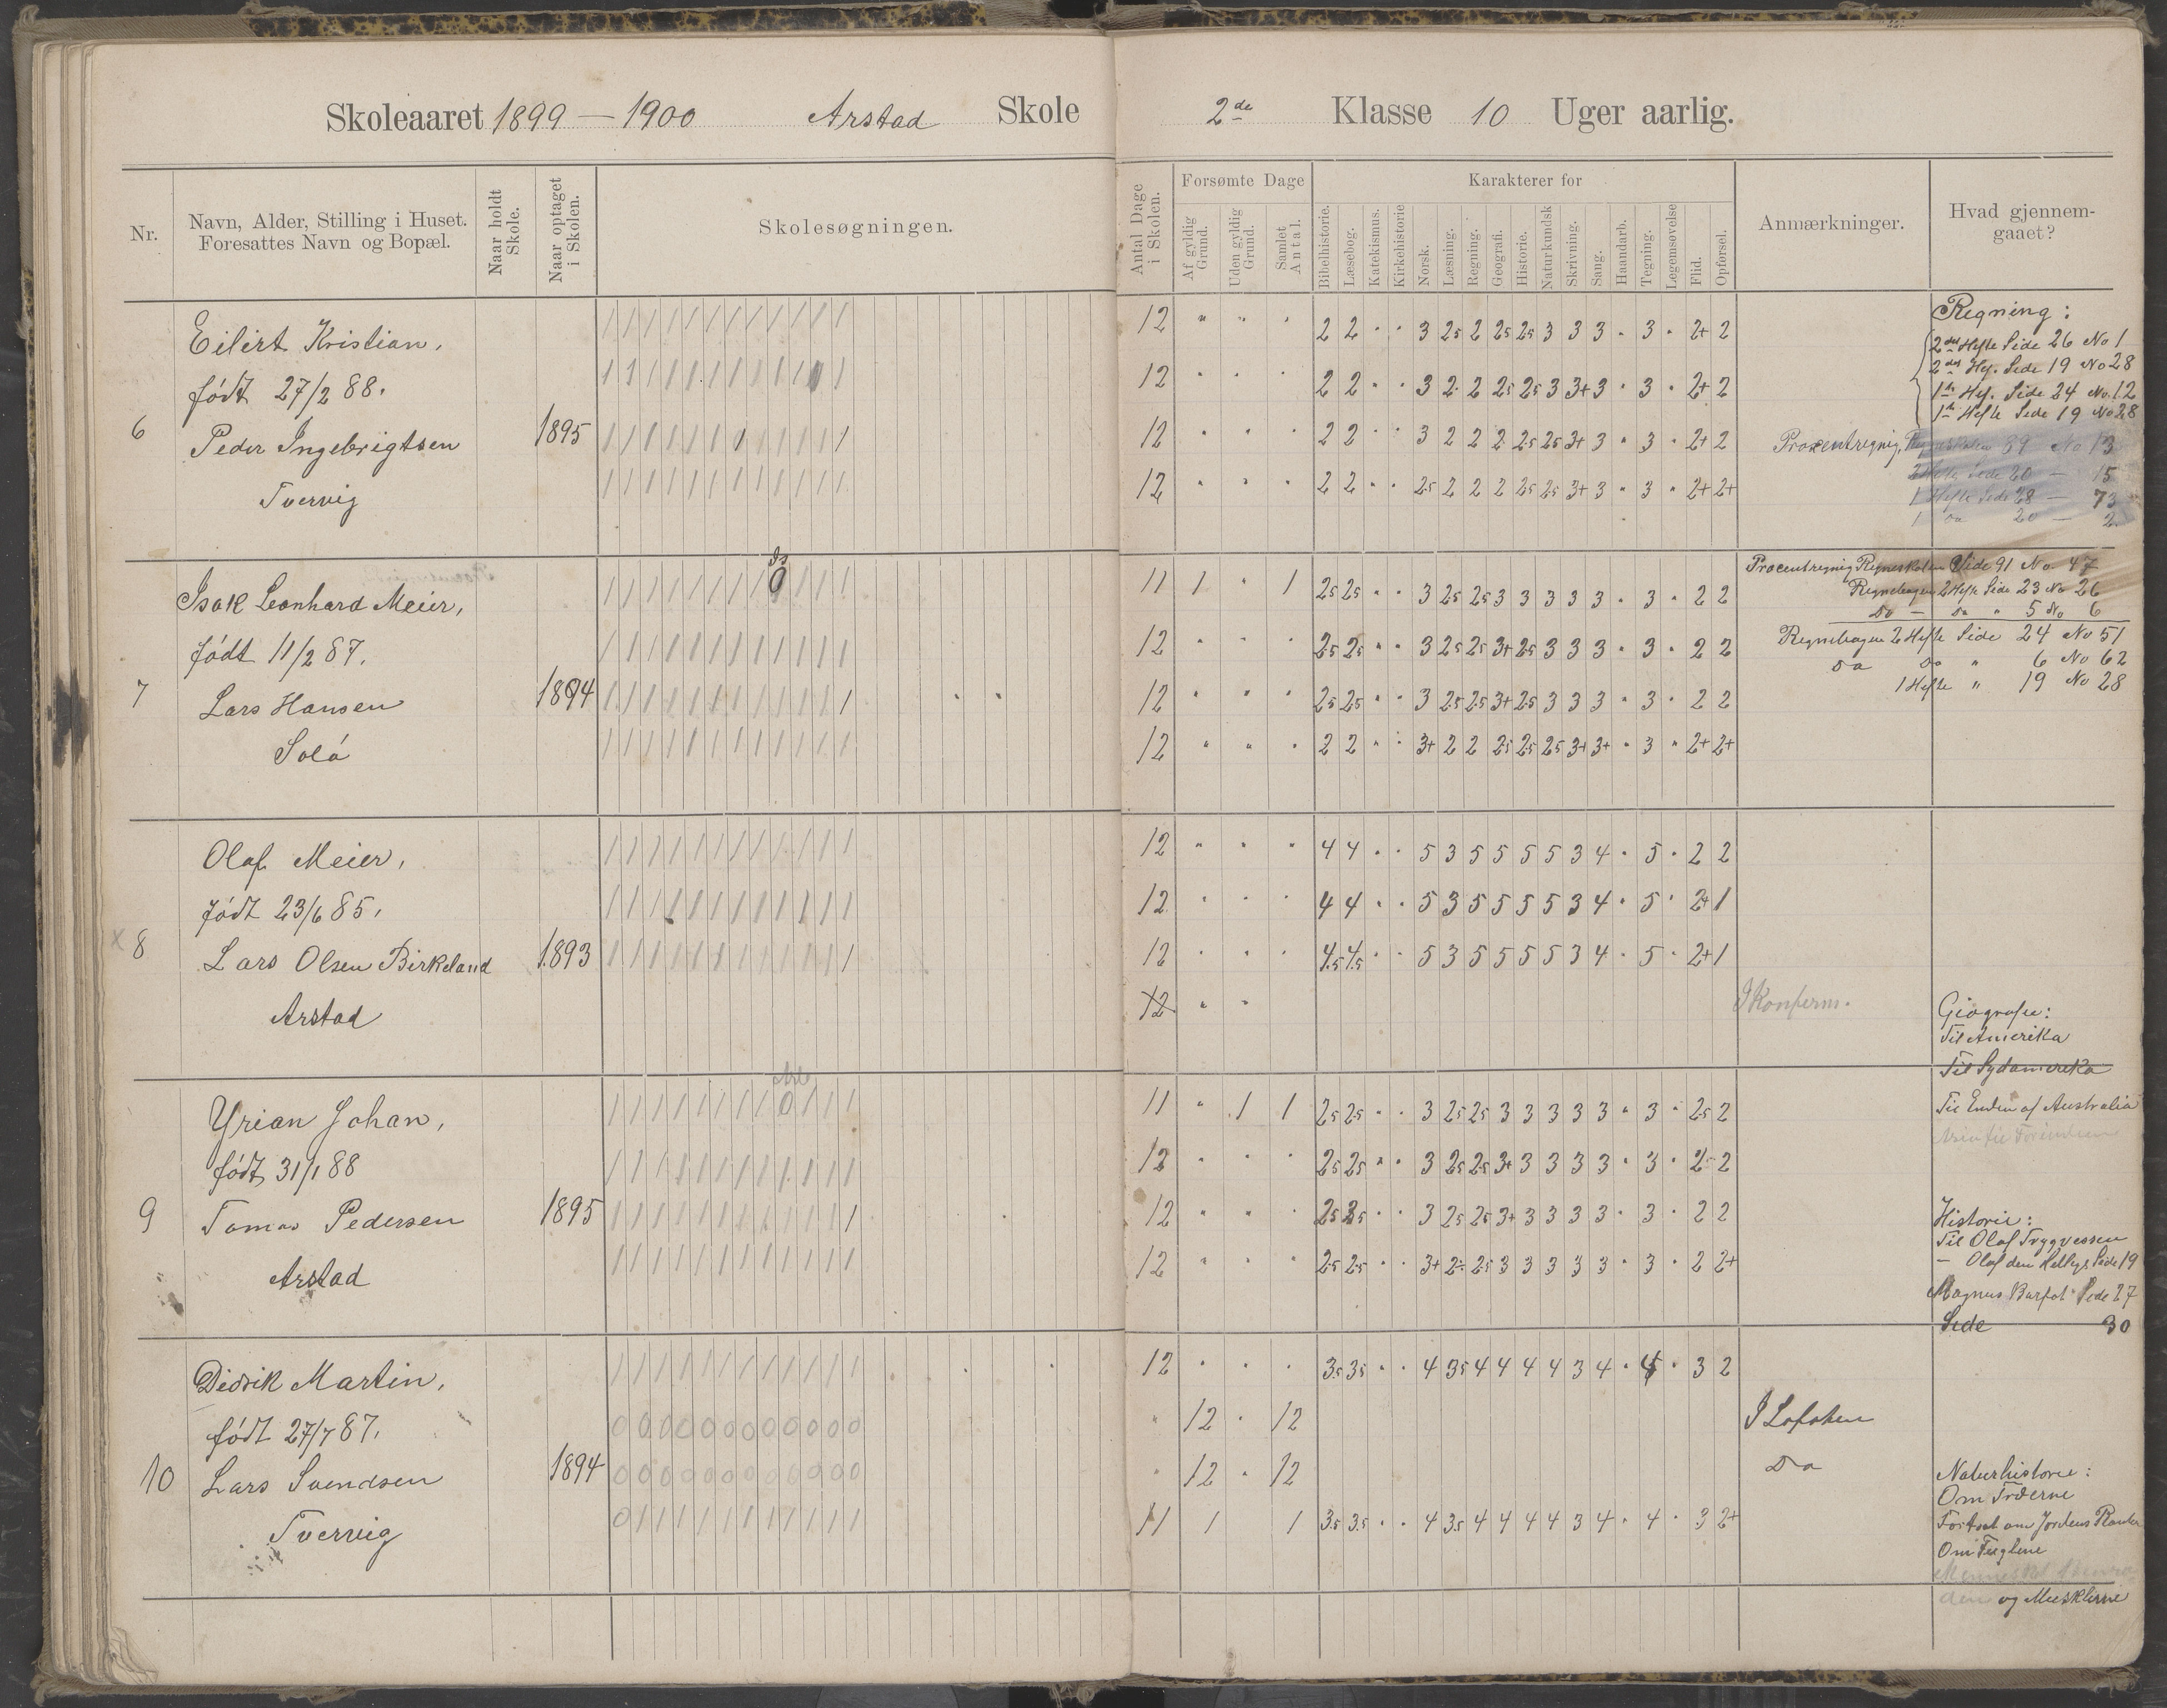 Skoleaaret 1899 – 1900 Arstad Skole 2de Klasse 10 Uger aarlig.
Nr. Navn, Alder, Stilling i Huset. Foresattes Navn og Bopæl. Naar holdt Skole. Naar optaget i Skolen. Skolesøgningen. Antal Dage i Skolen. Forsømte Dage Af gyldig Grund. Uden gyldig Grund. Samlet Antal. Karakterer for Bibelhistorie. Læsebog. Katekismus. Kirkehistorie Norsk. Læsning. Regning. Geografi. Historie. Naturkundsk Skrivning. Sang. Haandarb. Tegning. Legemsøvelse Flid. Opførsel. Anmærkninger. Hvad gjennemgaaet?
Eilert Kristian,
født 27/2 88.
6 Peder Ingebrigtsen 1895
Tvervig
12 " " " 2 2 " " 3 25 2 25 25 3 3 3 " 3 " 2+ 2
12 " " " 2 2 " " 3 2 2 25 25 3 3+ 3 " 3 " 2+ 2
12 " " " 2 2 " " 3 2 2 2 25 25 3+ 3 " 3 " 2+ 2
12 " " " 2 2 " " 25 2 2 2 25 25 3+ 3 " 3 " 2+ 2+
Regning:
2det Hefte Side 26 No 1
2det Hef. Side 19 No 28
1te Hef. Side 24 No. 12
1te Hefte Side 19 No 28
Procentregnig, 89 No 13
2 Hefte Side 20 – 15
1 Hefte Side 28 – 73
1 Do 20 – 2
Isak Leonhard Meier,
født 11/2 87.
7 Lars Hansen 1894
Solå
11 1 " 1 25 25 " " 3 25 25 3 3 3 3 3 " 3 " 2 2
12 " " " 25 25 " " 3 25 25 3+ 25 3 3 3 " 3 " 2 2
12 " " " 25 25 " " 3 25 25 3+ 25 3 3 3 " 3 " 2 2
12 " " " 2 2 " " 3+ 2 2 25 25 25 3+ 3+ " 3 " 2+ 2+
Procentregnig Regneskolen Side 91 No 47
Regnebogen 2 Hefte Side 23 No 26
Do – Do " 5 No 6
Regnebogen 2 Hefte Side 24 No 51
Do Do " 6 No 62
1 Hefte " 19 No 28
Olaf Meier,
født 23/6 85.
x 8 Lars Olsen Birkeland 1893
Arstad
12 " " " 4 4 " " 5 3 5 5 5 5 3 4 " 5 " 2 2
12 " " " 4 4 " " 5 3 5 5 5 5 3 4 " 5 " 2+ 1
12 " " " 4.5 4.5 " " 5 3 5 5 5 5 3 4 " 5 " 2+ 1
12 " " I Konferm.
Geografie:
Til Amerika
Til Sydamerika
Til Enden af Australia
Yrian Johan,
født 31/1 88
9 Tomas Pedersen 1895
Arstad
11 " 1 1 25 25 " " 3 25 25 3 3 3 3 3 " 3 " 25 2
12 " " " 25 25 " " 3 25 25 3+ 3 3 3 3 " 3 " 25 2
12 " " " 25 25 " " 3 25 25 3+ 3 3 3 3 " 3 " 2 2
12 " " " 25 25 " " 3+ 2 25 3 3 3 3 3 " 3 " 2 2+
Historie:
Til Olaf Tryggvessen
– Olaf den Hellige Side 19
Magnus Barfot Side 27
Side 30
Didrik Martin,
født 27/7 87.
10 Lars Svendsen 1894
Tvervig
12 " " " 35 35 " " 4 35 4 4 4 4 3 4 " 4 " 3 2
" 12 " 12 I Lofoten
" 12 " 12 Do
11 1 1 3.5 3.5 " " 4 3.5 4 4 4 4 3 4 " 4 " 3 2+
Naturhistorie:
Om Træerne
Fortsat om Jordens
Om Fuglene
og Musklerne